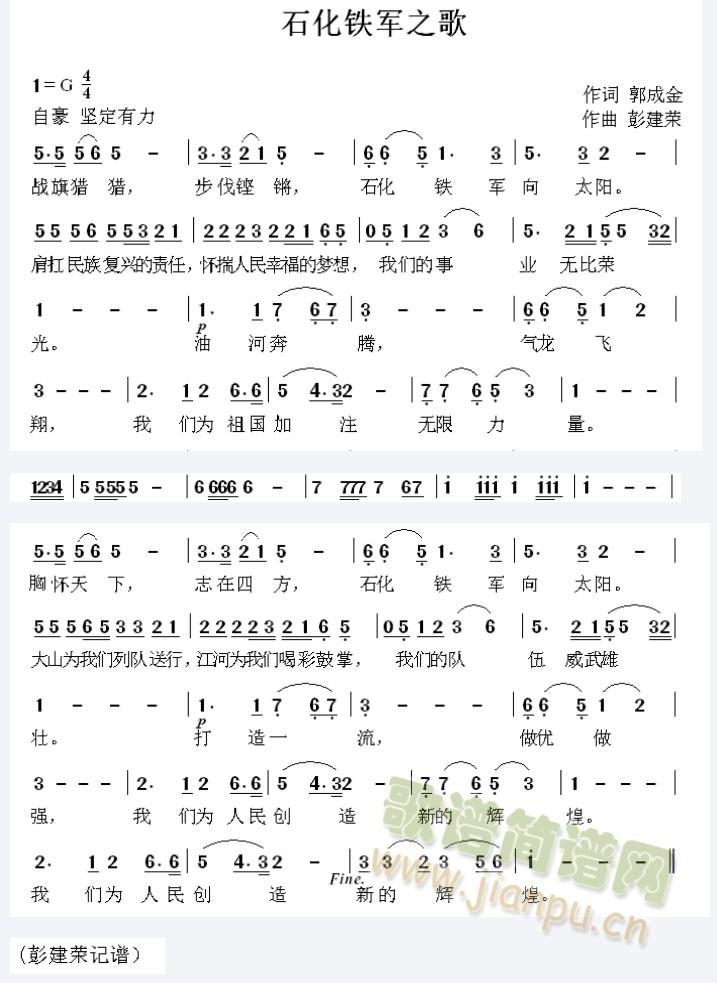 石化铁军之歌
1=G 4/4
作词 郭成金
自豪 坚定有力
作曲 彭建荣
5·5 56 5 - | 3·3 21 5 - | 66 5 1· 3 | 5· 3 2 - |
战旗猎 猎， 步伐铿 锵， 石化 铁 军 向 太阳。
55 56 5532 1 | 2223 221 65 | 05 12 3 6 | 5· 2155 32 |
肩扛民族复兴的责任，怀揣人民幸福的梦想， 我们的事 业 无比荣
1 - - - | 1· 1 7 67 | 3 - - - | 66 5 1 2 |
p
光。 油 河奔 腾， 气龙 飞
3 - - - | 2· 1 2 6·6 | 5 4·32 - | 77 65 3 | 1 - - - |
翔， 我 们为 祖国加 注 无限 力 量。
1234 | 5 5555 - | 6 6666 - | 7 777 7 67 | i iii i iii | i - - - |
5·5 56 5 - | 3·3 21 5 - | 66 5 1· 3 | 5· 3 2 - |
胸怀天 下， 志在四 方， 石化 铁 军 向 太阳。
5556533 21 | 22223216 5 | 0512 3 6 | 5· 2155 32 |
大山为我们列队送行，江河为我们喝彩鼓掌， 我们的队 伍 威武雄
1 - - - | 1· 1 7 67 | 3 - - - | 66 5 1 2 |
p
壮。 打 造一 流， 做优 做
3 - - - | 2· 1 2 6·6 | 5 4·32 - | 77 65 3 | 1 - - - |
强， 我 们为 人民创 造 新的 辉 煌。
2· 1 2 6·6 | 5 4·32 - | 33 23 56 | i - - - ‖
Fine.
我 们为 人民创 造 新的 辉 煌。
歌谱简谱网
www.jianpu.cn
(彭建荣记谱）